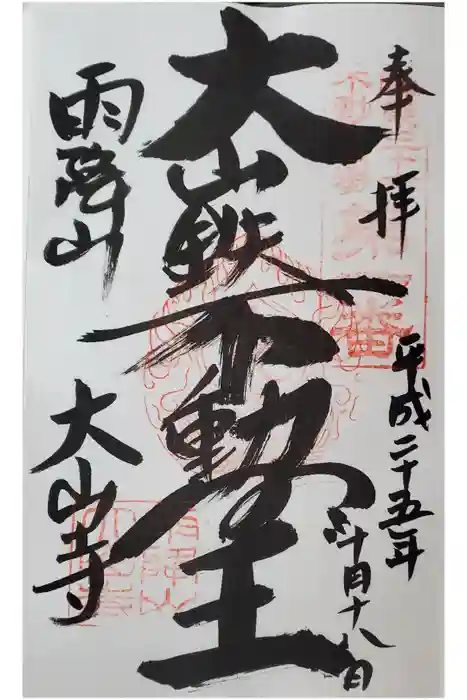 奉拝
平成二十五年
十月十八日
大山鉄不動王
雨降山
大山寺